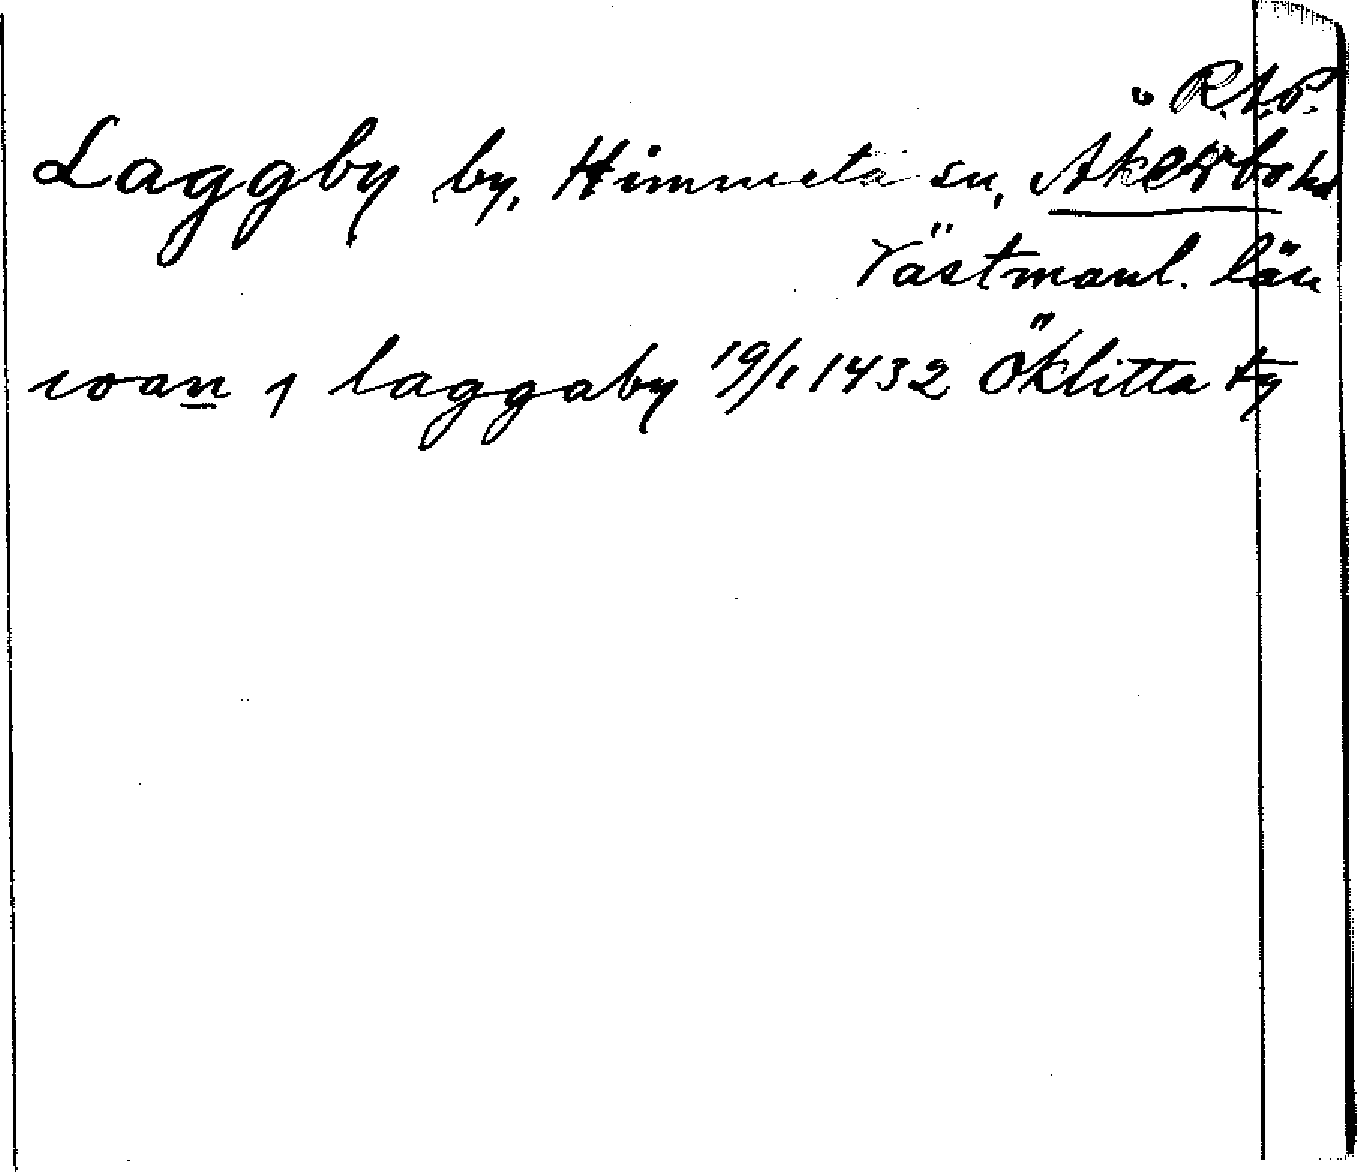 R.A.P.
Laggby by, Himmeta sn, Åkerbo hd
Västmanl. län
ioan j laggaby 19/1 1432 Öklitta ty